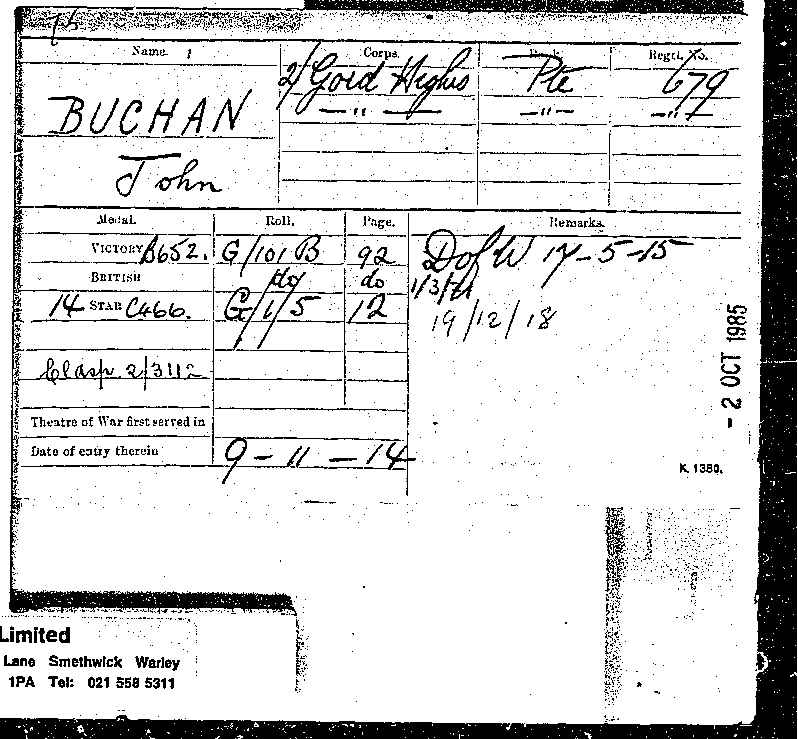 Name. Corps. Rank. Regtl. No.
BUCHAN 2/Gord Highrs Pte 679
— " — — " — — " —
John
Medal. Roll. Page. Remarks.
VICTORY B652. G/101 B 92 D of W 17-5-15
BRITISH do do
14 STAR C466. G/1/5 12 19/12/18
Clasp 2/3112
Theatre of War first served in
Date of entry therein 9-11-14
- 2 OCT 1985
K. 1380.
Limited
Lane Smethwick Warley
1PA Tel: 021 558 5311